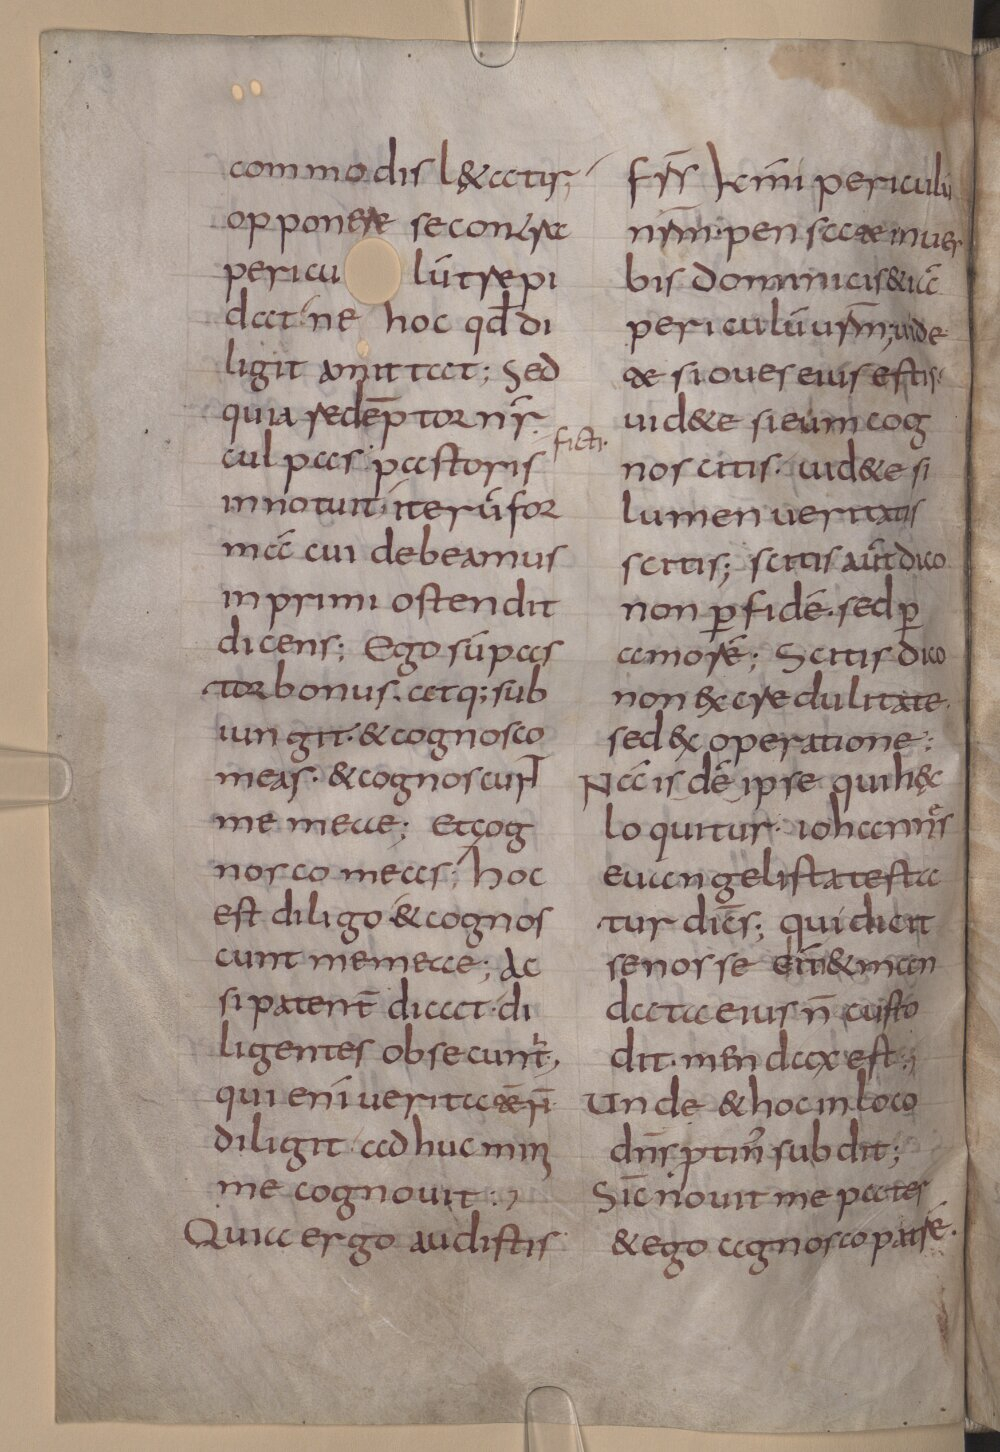 commodis l&atis;
opponere se contra
pericu lū trepi
dat· ne hoc qđ di
ligit amittat; Sed
quia redēptor nr̄·
culpas pastoris ficti·
innotuit· iterū for
mā cui debeamus
inprimi ostendit
dicens; Ego sū pas
tor bonus. atq; sub
iungit· & cognosco
meas· & cognoscunt
me meae; Et cog
nosco meas; hoc
est diligo & cognos
cunt me meae; Ac
si patent̄ dicat· di
ligentes obsecunt̄,
qui enī veritatē rī
diligit adhuc mini
me cognouit:,
Quia ergo audistis
fr̄s k̄mi periculū
nr̄m· pensate in uer
bis dominicis & iā
periculū ur̄m; uide
te si oues eius estis·
uid&e si eum cog
noscitis· uid&e si
lumen ueritatis
scitis; scitis aūt dico
non ꝑ fidē· sed ꝑ
amorē; Scitis dico
non ex credulitate·
sed ex operatione;
Nā is dē ipse qui hęc
loquitur· iohannēs
euangelista testa
tur dicēs; qui dicit
se nosse eūm & man
data eius n̄ custo
dit· mendax est:,
Unde & hoc in loco
dn̄s ꝓtin̄ subdit;
Sic nouit me pater
& ego agnosco patrē·